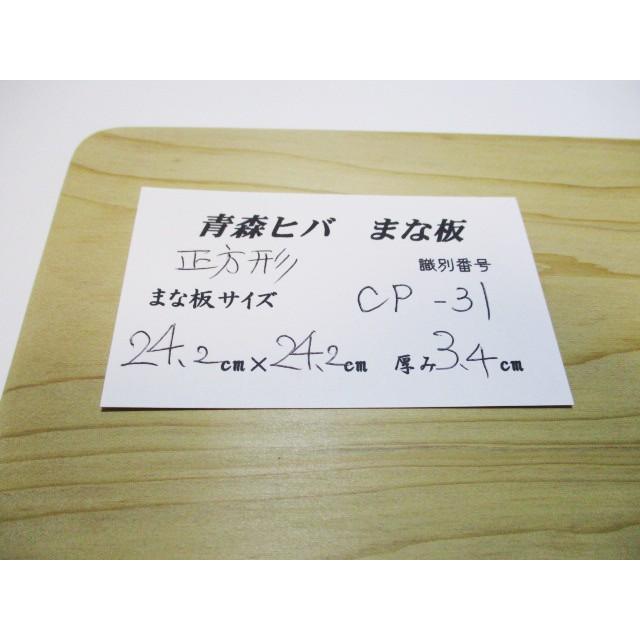 青森ヒバ まな板
正方形 識別番号
まな板サイズ CP-31
24.2cm×24.2cm 厚み3.4cm